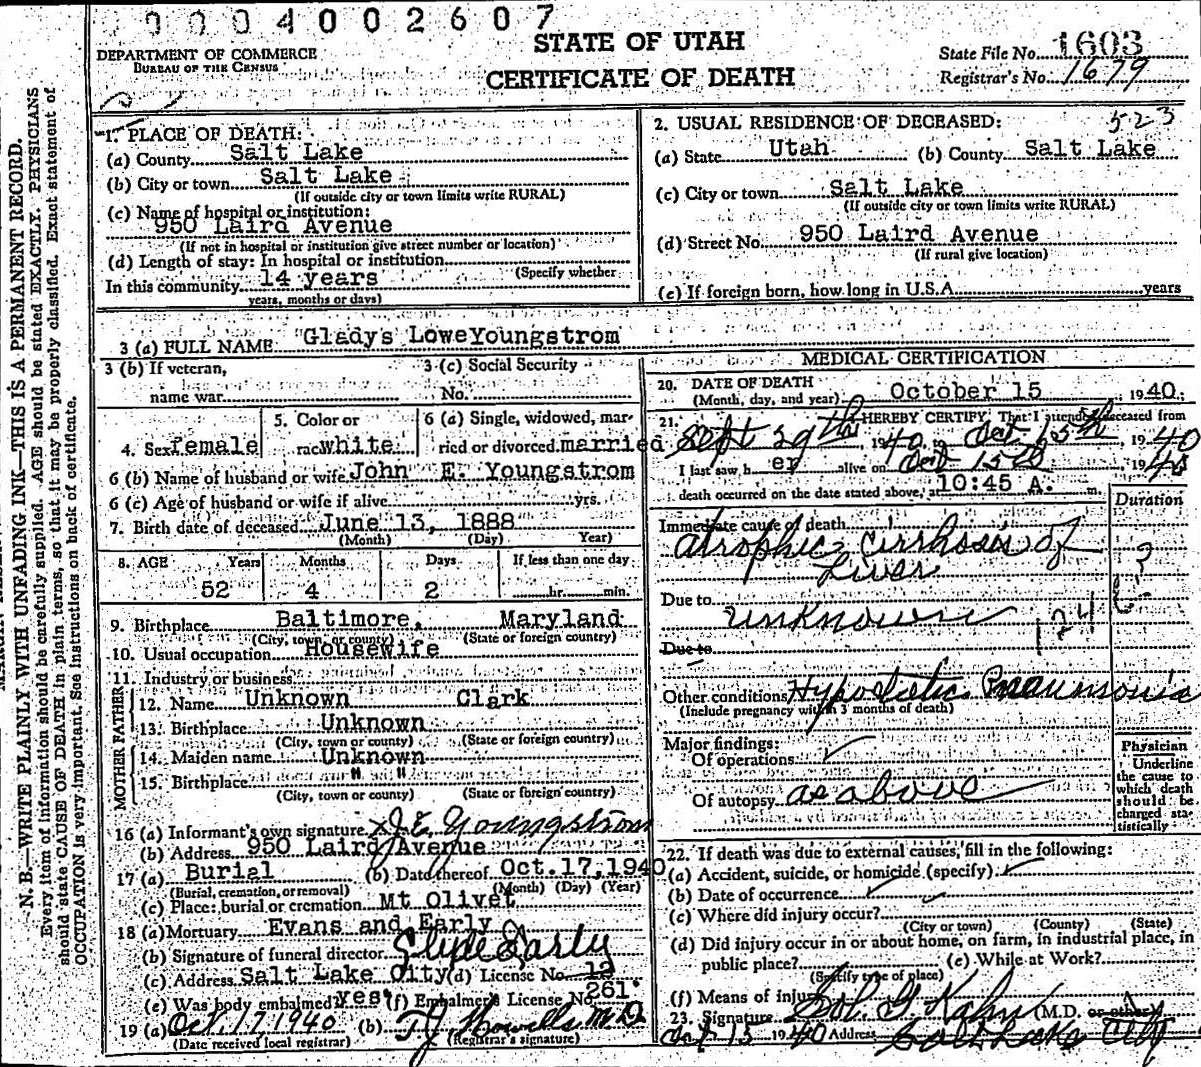 0004002607
DEPARTMENT OF COMMERCE
BUREAU OF THE CENSUS
STATE OF UTAH
CERTIFICATE OF DEATH
State File No. 1603
Registrar's No. 1679
N. B.—WRITE PLAINLY WITH UNFADING INK—THIS IS A PERMANENT RECORD.
Every item of information should be carefully supplied. AGE should be stated EXACTLY. PHYSICIANS
should state CAUSE OF DEATH in plain terms, so that it may be properly classified. Exact statement of
OCCUPATION is very important. See instructions on back of certificate.
1. PLACE OF DEATH:
(a) County Salt Lake
(b) City or town Salt Lake
(If outside city or town limits write RURAL)
(c) Name of hospital or institution:
950 Laird Avenue
(If not in hospital or institution give street number or location)
(d) Length of stay: In hospital or institution
(Specify whether
In this community 14 years
years, months or days)
2. USUAL RESIDENCE OF DECEASED: 523
(a) State Utah (b) County Salt Lake
(c) City or town Salt Lake
(If outside city or town limits write RURAL)
(d) Street No. 950 Laird Avenue
(If rural give location)
(e) If foreign born, how long in U.S.A. years
3 (a) FULL NAME Gladys Lowe Youngstrom
3 (b) If veteran,
name war
3 (c) Social Security
No.
4. Sex female
5. Color or
race white
6 (a) Single, widowed, mar-
ried or divorced married
6 (b) Name of husband or wife John E. Youngstrom
6 (c) Age of husband or wife if alive yrs.
7. Birth date of deceased June 13, 1888
(Month) (Day) Year)
8. AGE Years Months Days If less than one day
52 4 2 hr. min.
9. Birthplace Baltimore, Maryland
(City, town, or county) (State or foreign country)
10. Usual occupation Housewife
11. Industry or business
FATHER
12. Name Unknown Clark
13. Birthplace Unknown
(City, town or county) (State or foreign country)
MOTHER
14. Maiden name Unknown
15. Birthplace " "
(City, town or county) (State or foreign country)
16 (a) Informant's own signature x J E Youngstrom
(b) Address 950 Laird Avenue
17 (a) Burial (b) Date thereof Oct.17,1940
(Burial, cremation, or removal) (Month) (Day) (Year)
(c) Place: burial or cremation Mt Olivet
18 (a) Mortuary Evans and Early
(b) Signature of funeral director Clyde Early
(c) Address Salt Lake City (d) License No. 19
(e) Was body embalmed? yes (f) Embalmer's License No. 261
19 (a) Oct. 17 1940 (b) T.J. Howells M.D.
(Date received local registrar) (Registrar's signature)
MEDICAL CERTIFICATION
20. DATE OF DEATH
(Month, day, and year) October 15 1940
21. I HEREBY CERTIFY, That I attended deceased from
Sept 29th 1940 to Oct. 15th 1940
I last saw her alive on Oct 15th 1940
death occurred on the date stated above, at 10:45 A. m.
Duration
Immediate cause of death
Atrophic Cirrhosis of
Liver
Due to unknown
124
Due to
Other conditions Hypostatic Pneumonia
(Include pregnancy within 3 months of death)
Major findings:
Of operations
Of autopsy as above
Physician
Underline
the cause to
which death
should be
charged sta-
tistically
22. If death was due to external causes, fill in the following:
(a) Accident, suicide, or homicide (specify)
(b) Date of occurrence
(c) Where did injury occur?
(City or town) (County) (State)
(d) Did injury occur in or about home, on farm, in industrial place, in
public place? (e) While at Work?
(Specify type of place)
(f) Means of injury
23. Signature Sol. G. Kahn (M.D. or other)
Oct 15 1940 Address Salt Lake City